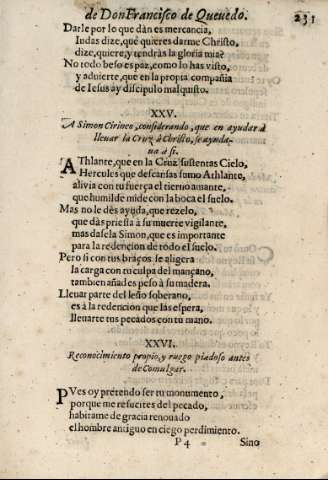 de Don Francisco de Quevedo. 231
Darle por lo que dàn es mercancia,
Iudas dize, què quieres darme Christo,
dize, quiere, y tendràs la gloria mia?
No todo beso es paz, como lo has visto,
y aduierte, que en la propia compañia
de Iesus ay discipulo malquisto.
XXV.
A Simon Cirineo, considerando, que en ayudar à
lleuar la Cruz à Christo, se ayuda-
ua à si.
AThlante, que en la Cruz sustentas Cielo,
Hercules que descansas sumo Athlante,
aliuia con tu fuerça el tierno amante,
que humilde mide con la boca el suelo.
Mas no le dès ayuda, que rezelo,
que dàs priessa à su muerte vigilante,
mas dasela Simon, que es importante
para la redencion de todo el suelo.
Pero si con tus braços se aligera
la carga con tu culpa del mançano,
tambien añades peso à su madera.
Lleuar parte del leño soberano,
es à la redencion que las espera,
lleuarte tus pecados con tu mano.
XXVI.
Reconocimiento propio, y ruego piadoso antes
de Comulgar.
PVes oy pretendo ser tu monumento,
porque me resucites del pecado,
habitame de gracia renouado
el hombre antiguo en ciego perdimiento.
P 4 Sino